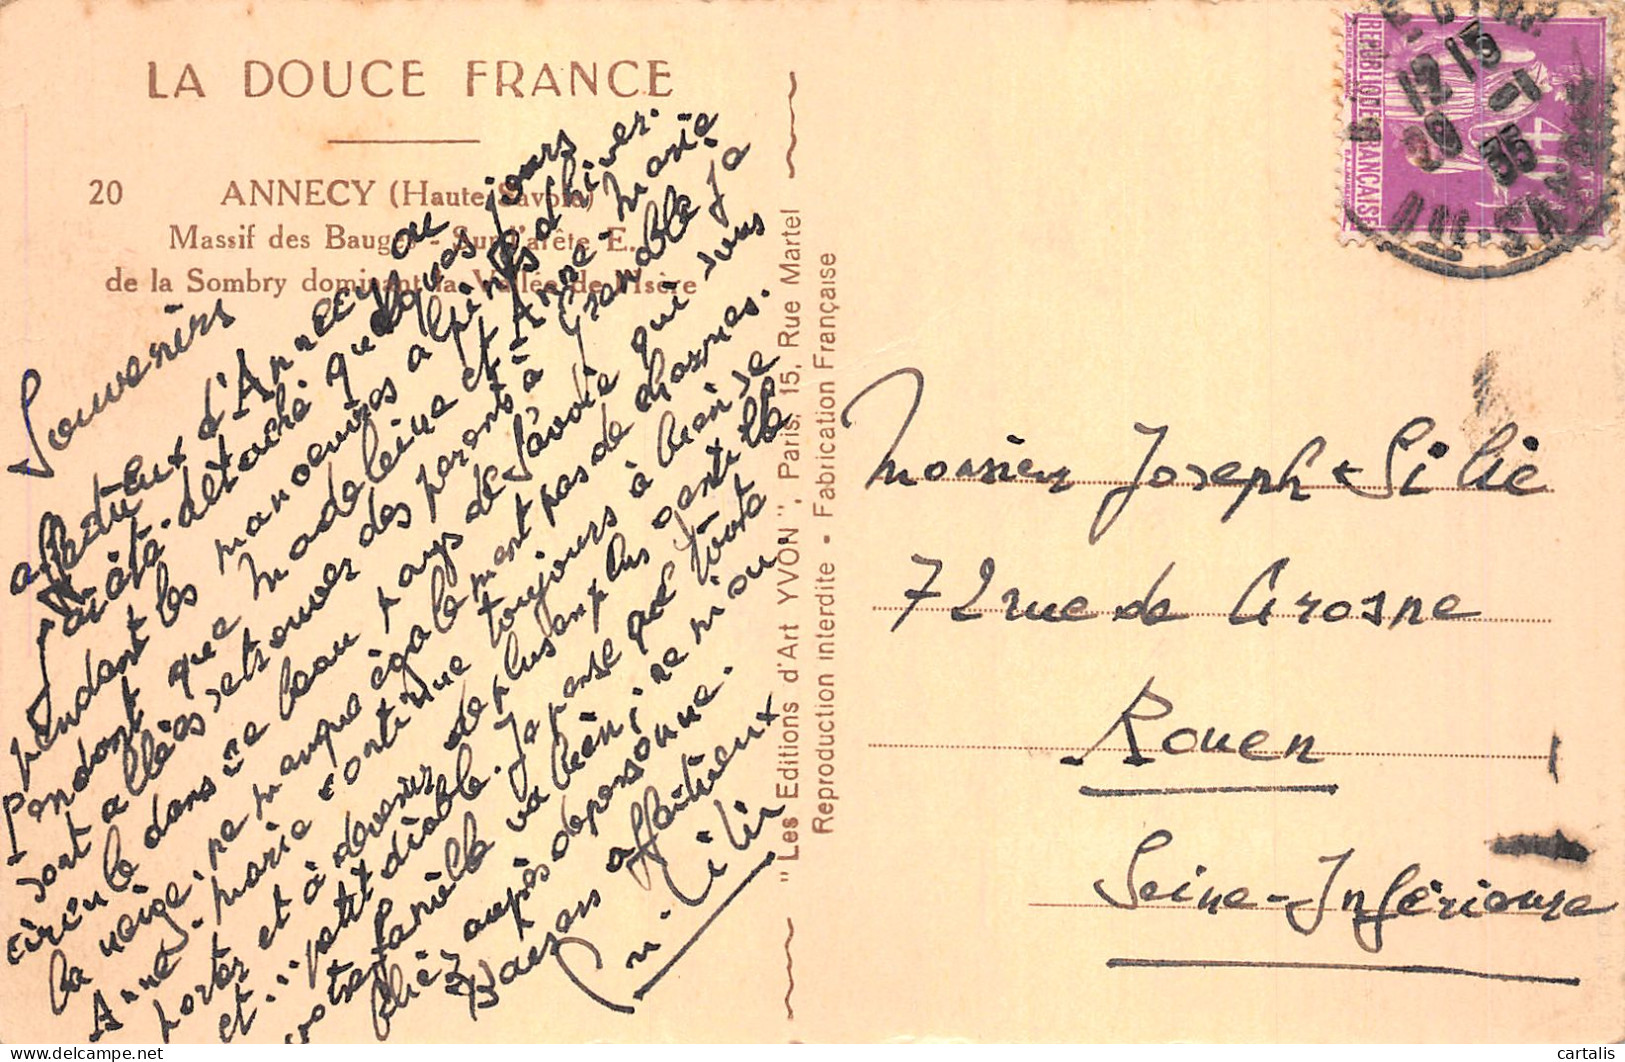 LA DOUCE FRANCE
20 ANNECY (Haute-Savoie)
Massif des Bauges - Sur l'arête E.
de la Sombry dominant la Vallée de l'Isère
Souvenirs
affectueux d'Annecy où
j'ai été détaché quelques jours
pendant les manoeuvres alpines d'hiver.
Pendant que Madeleine et Anne-Marie
sont allées retrouver des parents à Grenoble je
circule dans ce beau pays de Savoie qui sous
la neige, ne manque également pas de charmes.
Anne-Marie continue toujours à bien se
porter et à devenir de plus en plus gentille
et... petit diable. Je pense que toute
votre famille va bien ; ne m'ou-
bliez auprès de personne.
Baisers affectueux
"Les Editions d'Art YVON", Paris, 15, Rue Martel
Reproduction interdite • Fabrication Française
REPUBLIQUE FRANÇAISE
POSTES
40c
12 15
29 -1
35
Monsieur Joseph
72 rue de Crosne
Rouen
Seine-Inférieure
cartalis